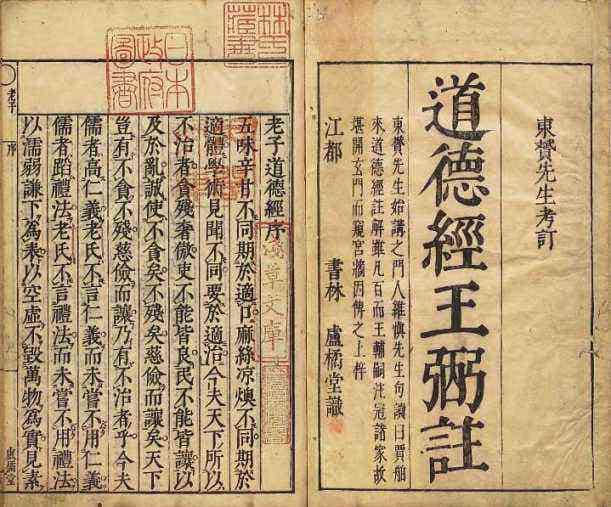 東贇先生考訂
道德經王弼註
東贇先生始講之門人雖惧先生句讀曰賈舶
來道德經註解雖凡百而王輔嗣註冠諸家故
堪開玄門而窺宮墻因傳之上梓
江都 書林 盧橘堂識
林氏藏書
日本政府圖書
淺草文庫
老子道德經序
五味辛甘不同期於適口麻絲涼燠不同期於
適體學術見聞不同要於適治今夫天下所以
不治者貪殘奢傲吏不能皆良民不能皆讓以
及於亂誠使不貪矣不殘矣慈儉而讓矣天下
豈有不貪不殘慈儉而讓乃有不治者乎今夫
儒者高仁義老氏不言仁義而未嘗不用仁義
儒者蹈禮法老氏不言禮法而未嘗不用禮法
以濡弱謙下為表以空虛不毀萬物為實見素
老子 序